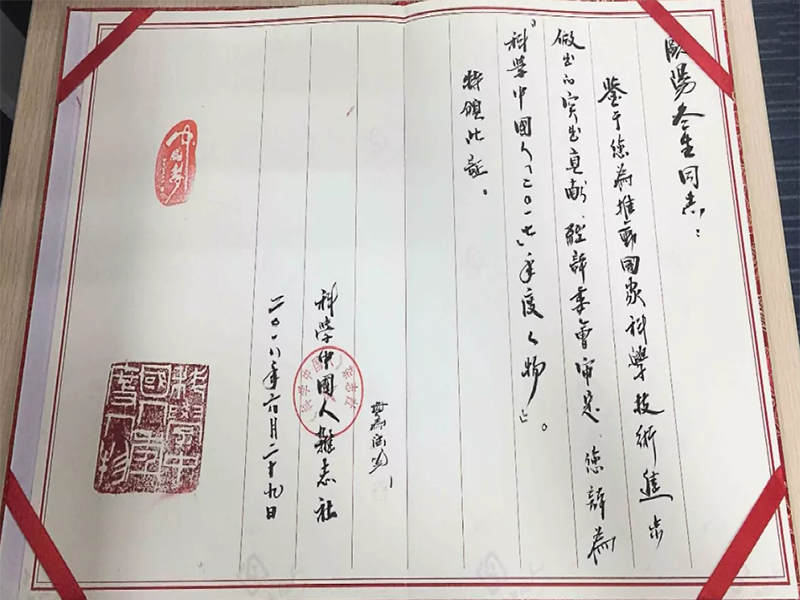 歐陽冬生同志：
鉴于您為推動國家科學技術進步
做出的突出貢献、經評委會审定、您評為
『科學中國人（二〇一七）年度人物』。
特頒此証。
科學中國人雜志社
二〇一八年六月二十九日
中国夢
科學中國人年度人物